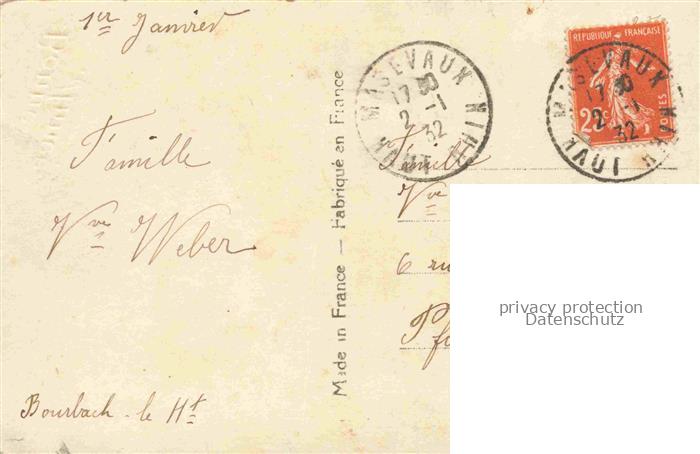 1er Janvier
Famille
Vve Weber
Bourbach-le Ht
Made in France — Fabriqué en France
MASEVAUX HAUT RHIN
17 30
2 -1
32
REPUBLIQUE FRANÇAISE
POSTES
MASEVAUX HAUT RHIN
17 30
2 -1
32
Famille
Vve
6 ru
Pf
privacy protection
Datenschutz